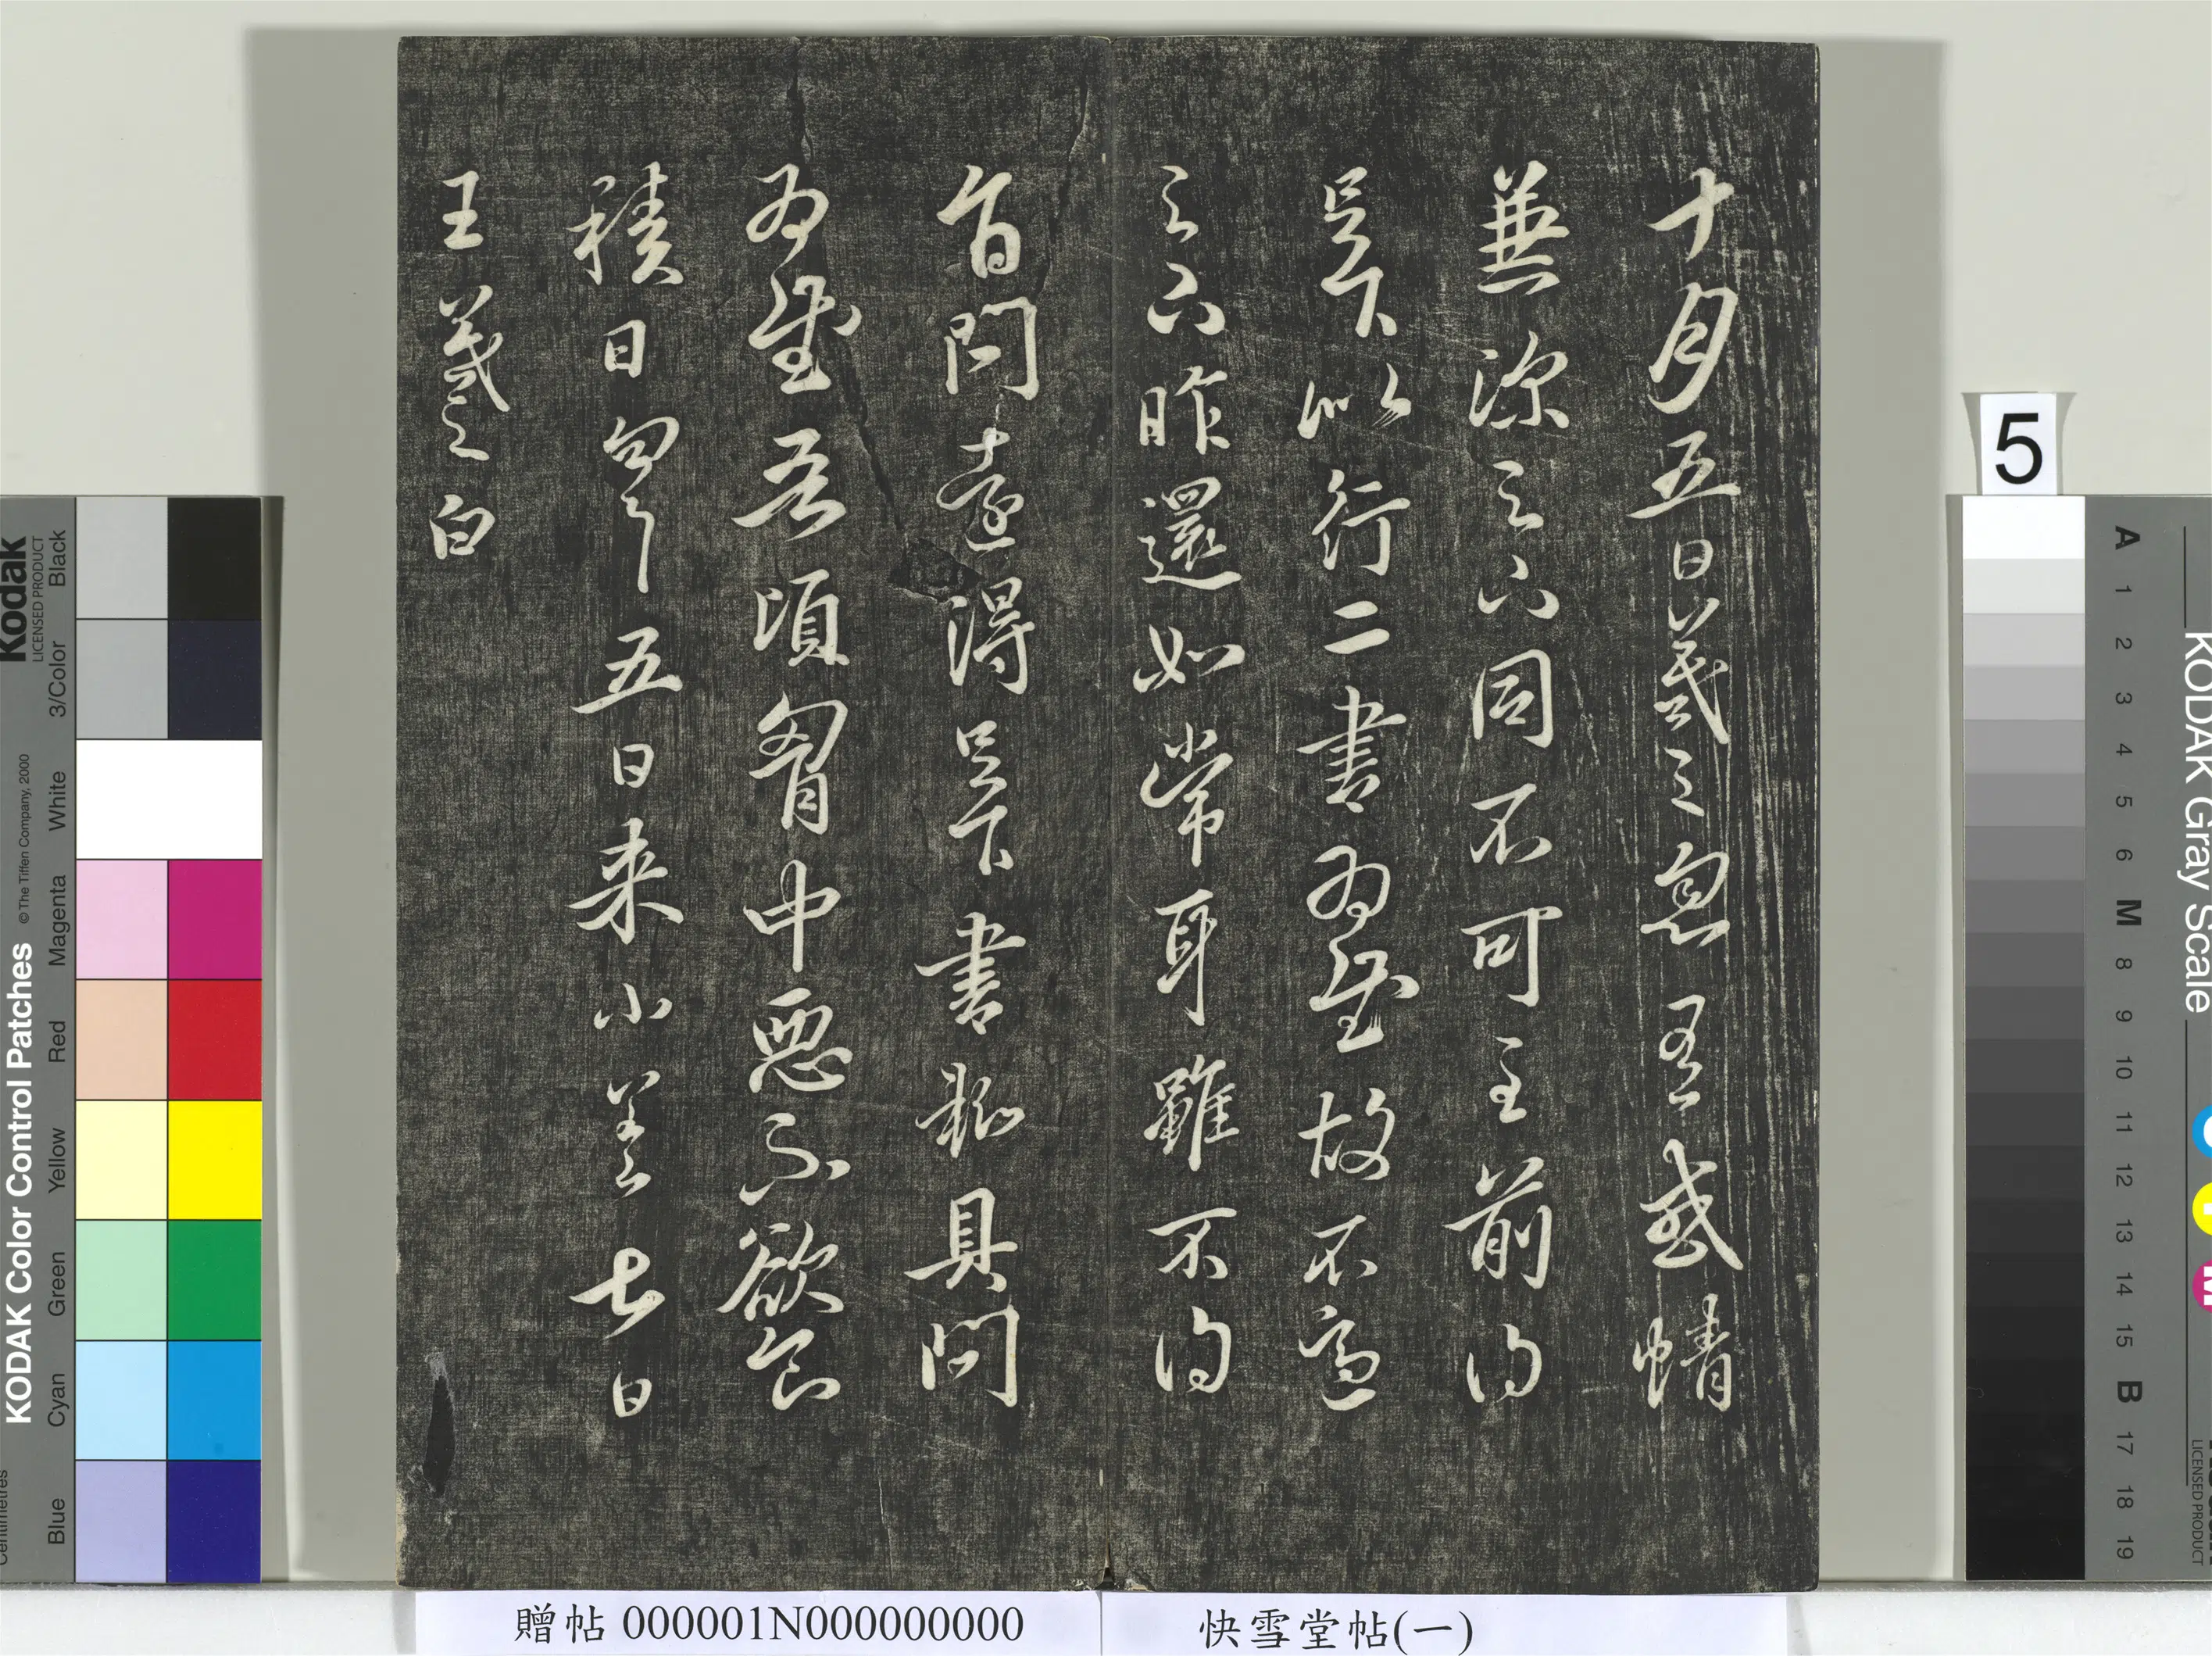 十月五日羲之感情
兼深之六同不可言前得
足下以行二書為慰故不適
之六昨還如常耳雖不得
旨問遠得足下書輒具問
為慰吾頃胸中惡不欲食
積日匆匆五日来小差七日
王羲之白
5
贈帖 000001N000000000
快雪堂帖(一)
KODAK Color Control Patches
© The Tiffen Company, 2000
Kodak
LICENSED PRODUCT
Blue Cyan Green Yellow Red Magenta White 3/Color Black
Centimetres
KODAK Gray Scale
A 1 2 3 4 5 6 M 8 9 10 11 12 13 14 15 B 17 18 19
LICENSED PRODUCT